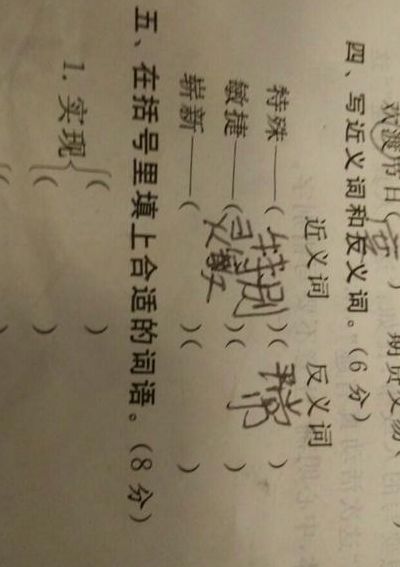 欢渡节日(度) 期货交易(
四、写近义词和反义词。(6分)
近义词 反义词
特殊——(特别)(平常)
敏捷——(灵敏)( )
崭新——( )( )
五、在括号里填上合适的词语。(8分)
1. 实现{( )
( )
( )